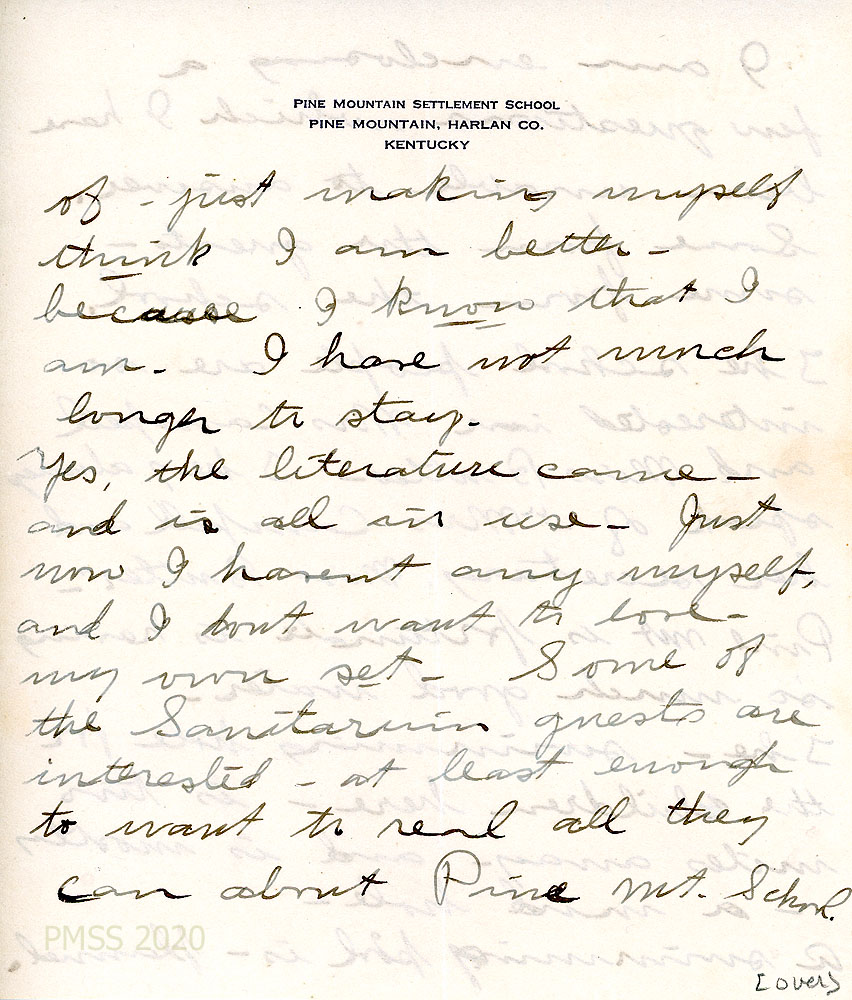 PINE MOUNTAIN SETTLEMENT SCHOOL
PINE MOUNTAIN, HARLAN CO.
KENTUCKY
of - just making myself
think I am better -
because I know that I
am - I have not much
longer to stay.
Yes, the literature came -
and is all in use - Just
now I havent any myself,
and I dont want to lose
my own set - Some of
the Sanitarium guests are
interested - at least enough
to want to read all they
can about Pine Mt. School.
PMSS 2020
[over]